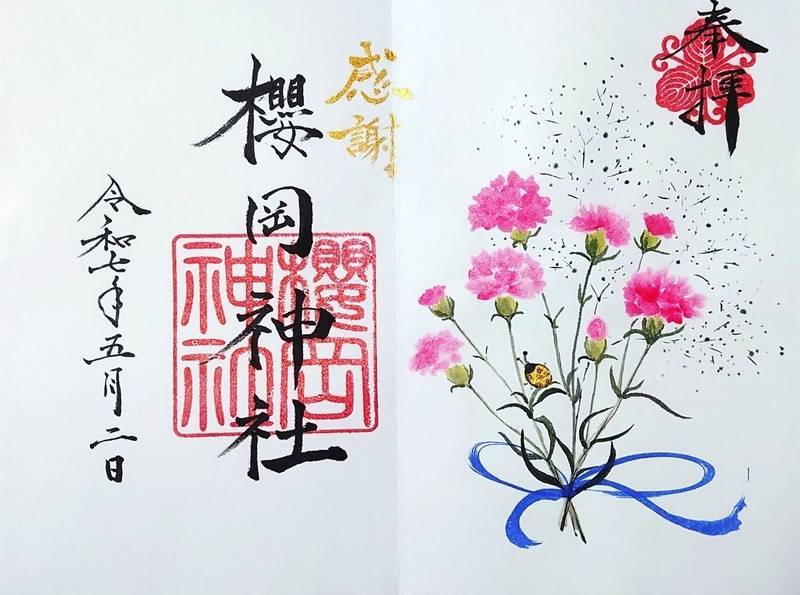 奉拝
感謝
櫻岡神社
櫻岡
神社
令和七年五月二日